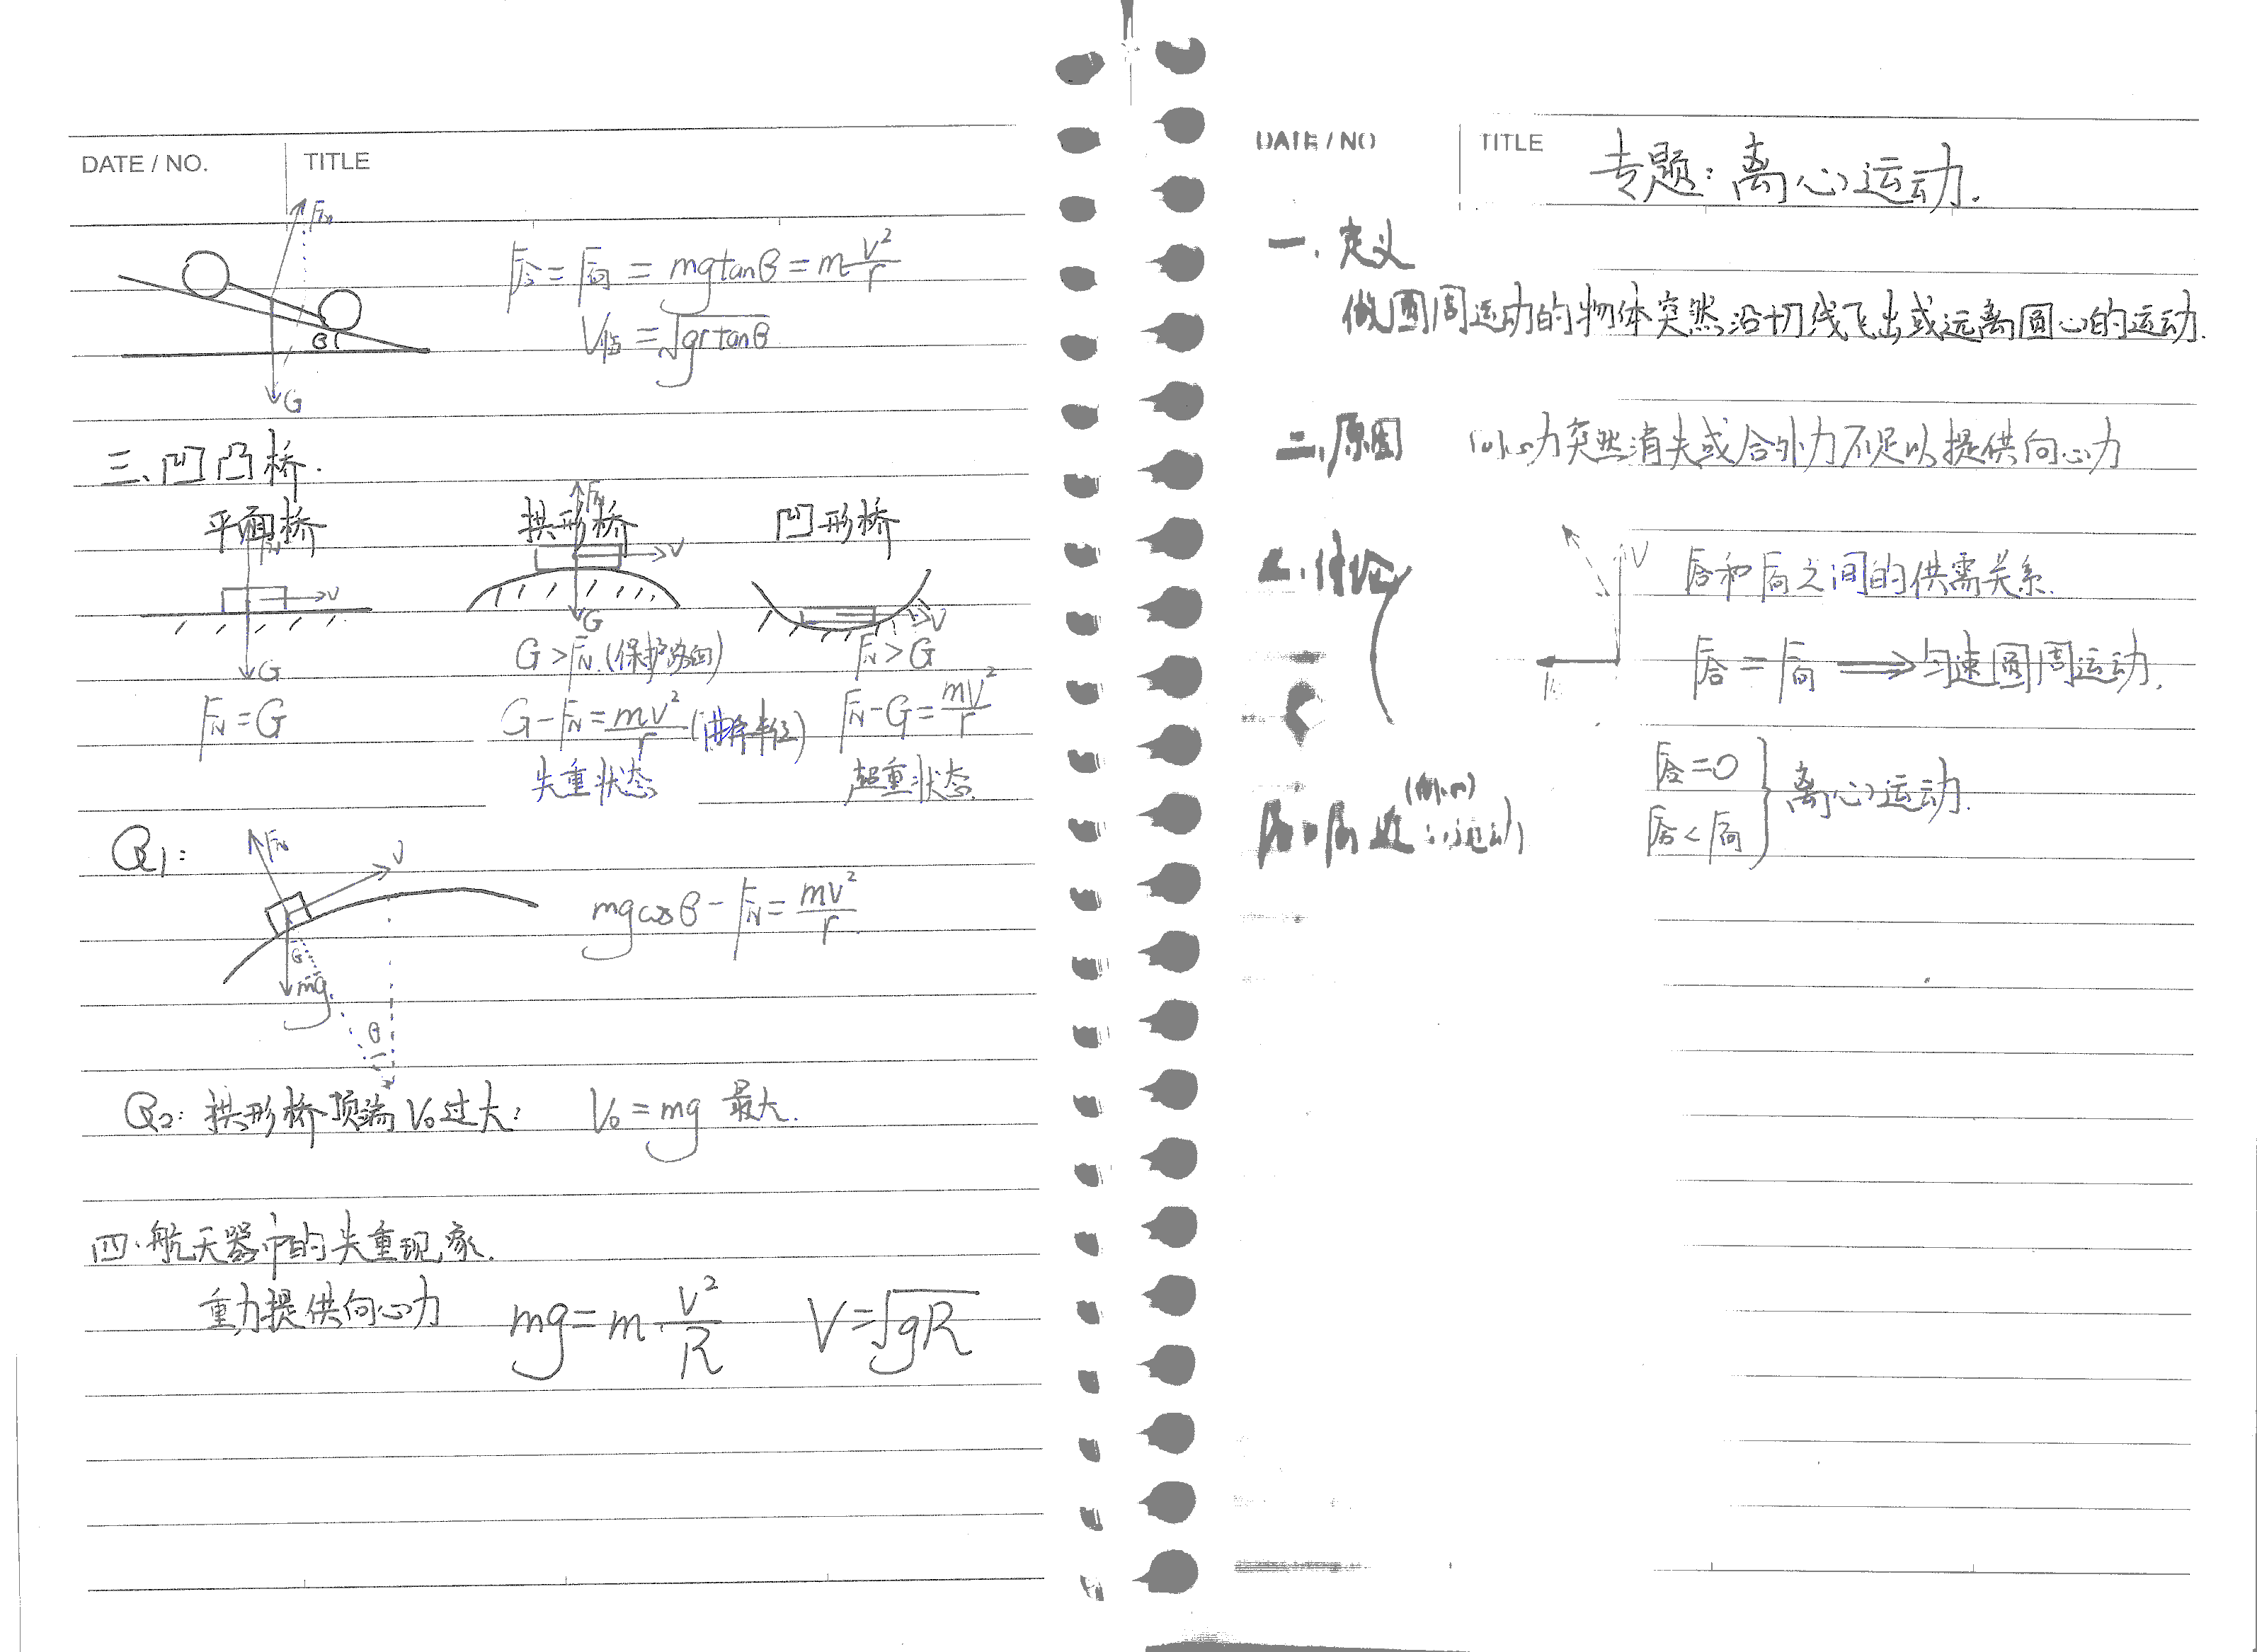 DATE / NO. TITLE
F_N
F合 = F向 = mgtanθ = m v²/r
V临 = √(grtanθ)
θ
G
三、凹凸桥.
平面桥 拱形桥 凹形桥
F_N F_N
V V V
G G
G > F_N (保护路面) F_N > G
F_N = G G - F_N = mv²/r F_N - G = mv²/r
失重状态 超重状态
Q1:
F_N V
mgcosθ - F_N = mv²/r
θ
mg
θ
Q2: 拱形桥顶端V₀过大: V₀ = mg 最大.
四.航天器中的失重现象.
重力提供向心力 mg = m v²/R V = √gR
DATE / NO TITLE 专题:离心运动.
一.定义
做圆周运动的物体突然沿切线飞出或远离圆心的运动.
二.原因 向心力突然消失或合外力不足以提供向心力
V
F合和F向之间的供需关系.
F合 = F向 ⟶ 匀速圆周运动.
F合 = 0
F合 < F向 } 离心运动.